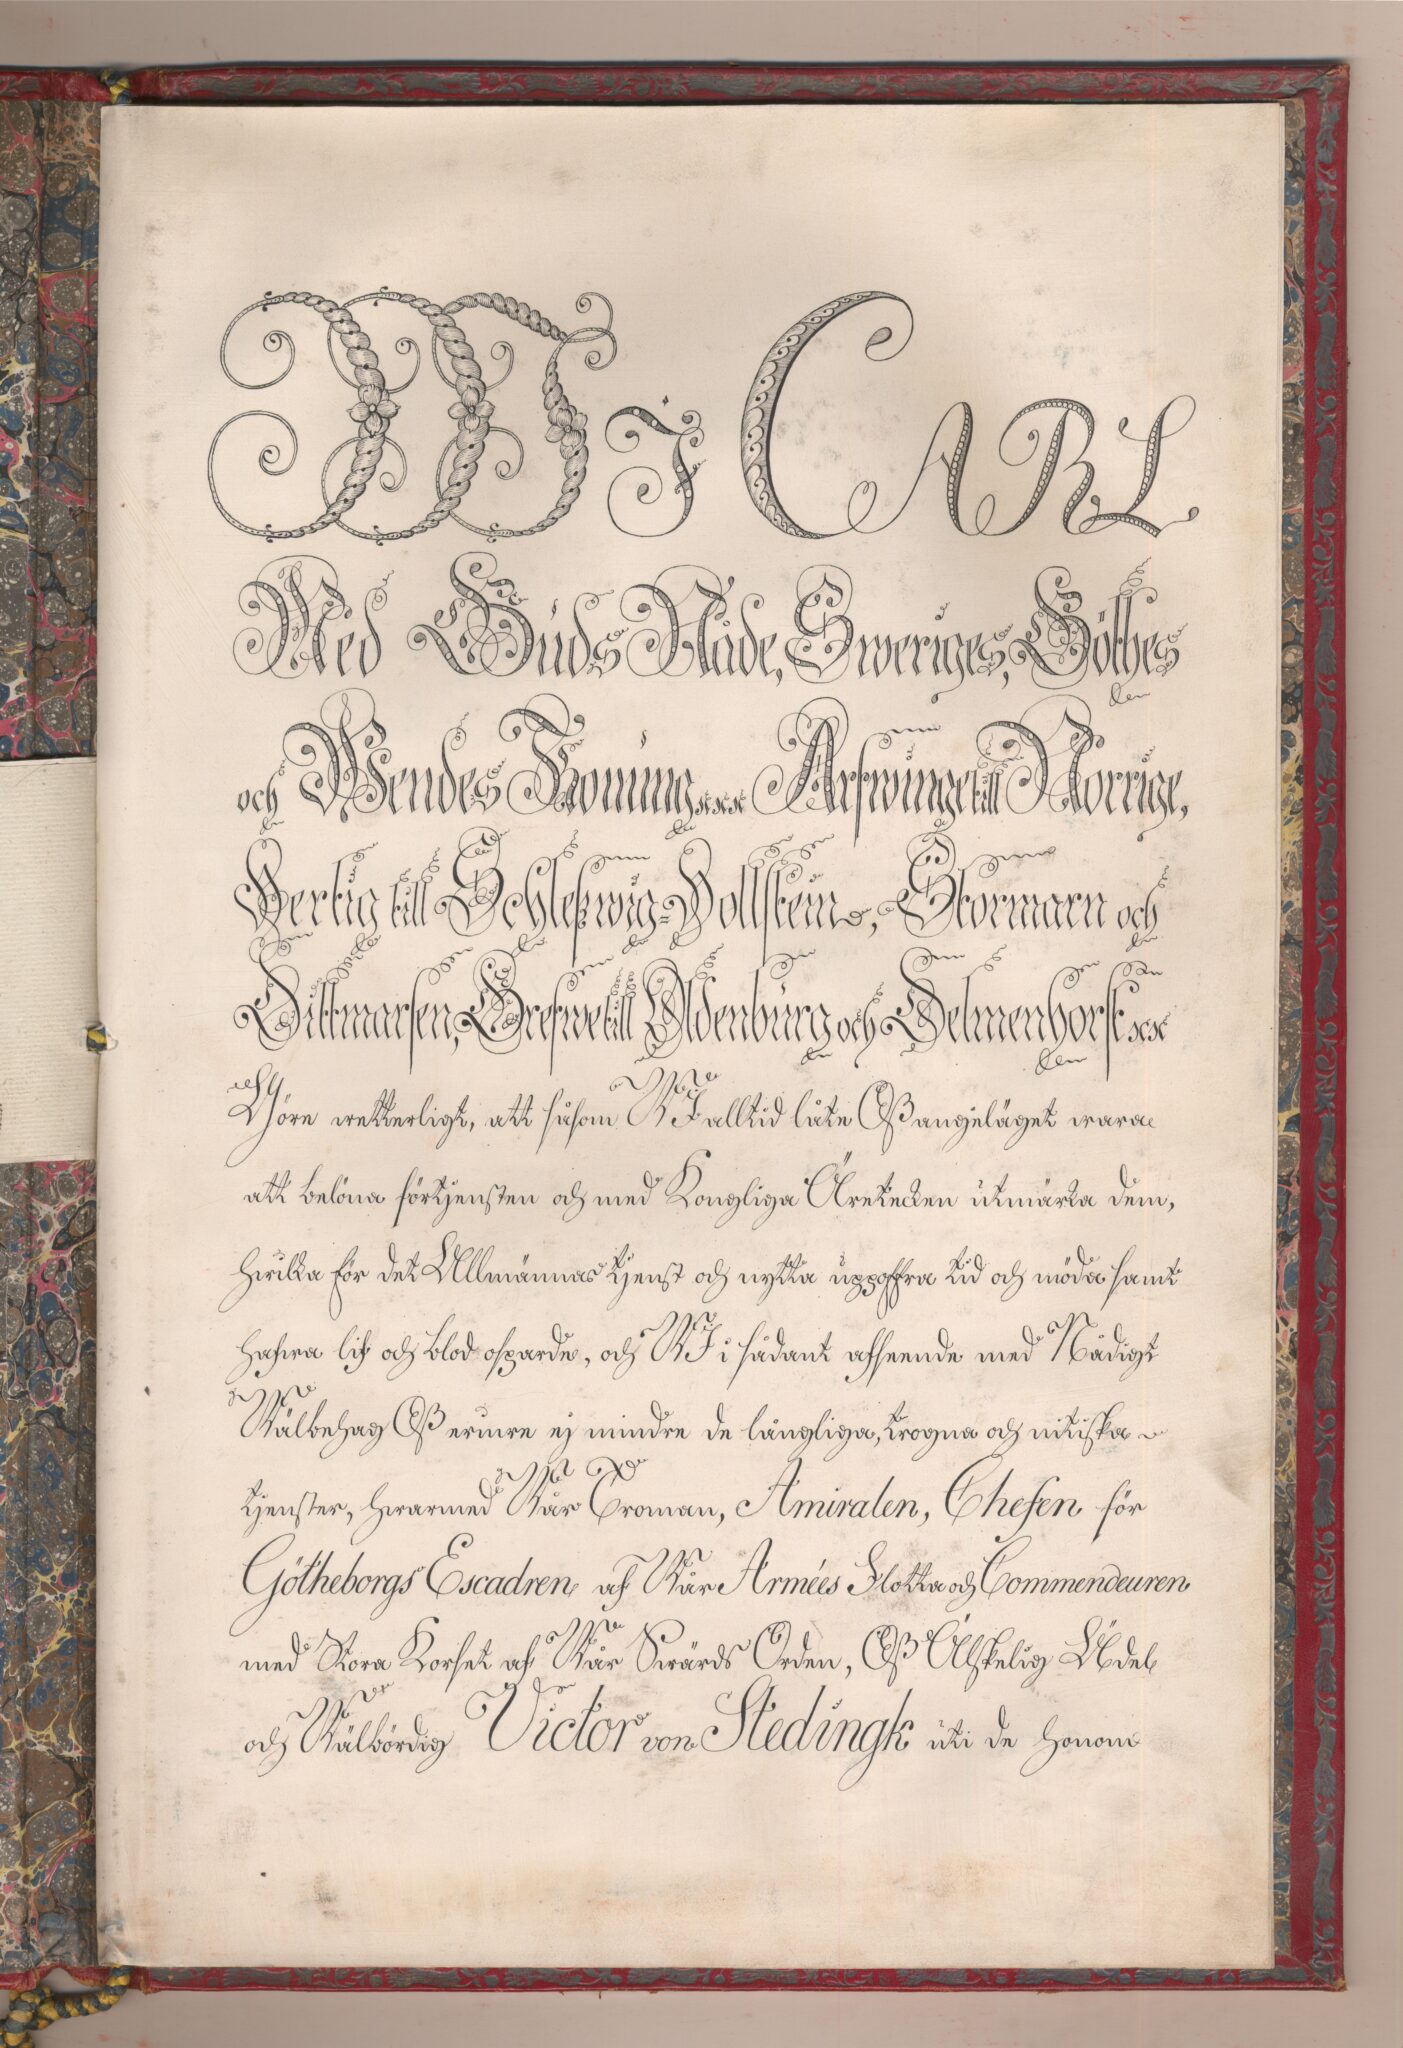 WJ CARL
Med Guds Nåde, Sweriges, Göthes
och Wendes Konung &c &c &c Arfwinge till Norrige,
Hertig till Schleswig-Hollstein, Stormarn och
Dittmarsen, Grefwe till Oldenburg och Delmenhorst &c &c
Göre wetterligt, att såsom WJ alltid låte Oß angeläget wara
att belöna förtjensten och med Kongliga Äretecken utmärka dem,
hwilka för det Allmännas tjenst och nytta uppoffra tid och möda samt
hafwa lif och blod ospardt, och WJ i sådant afseende med Nådigt
Wälbehag Oß erinre ej mindre de långliga, trogna och nitiska
tjenster, hwarmed Wår Troman, Amiralen, Chefen för
Götheborgs Escadren af Wår Armées Flotta och Commendeuren
med Stora Korset af Wår Swärds Orden, Oß Älskelig Ädel
och Wälbördig Victor von Stedingk uti de honom